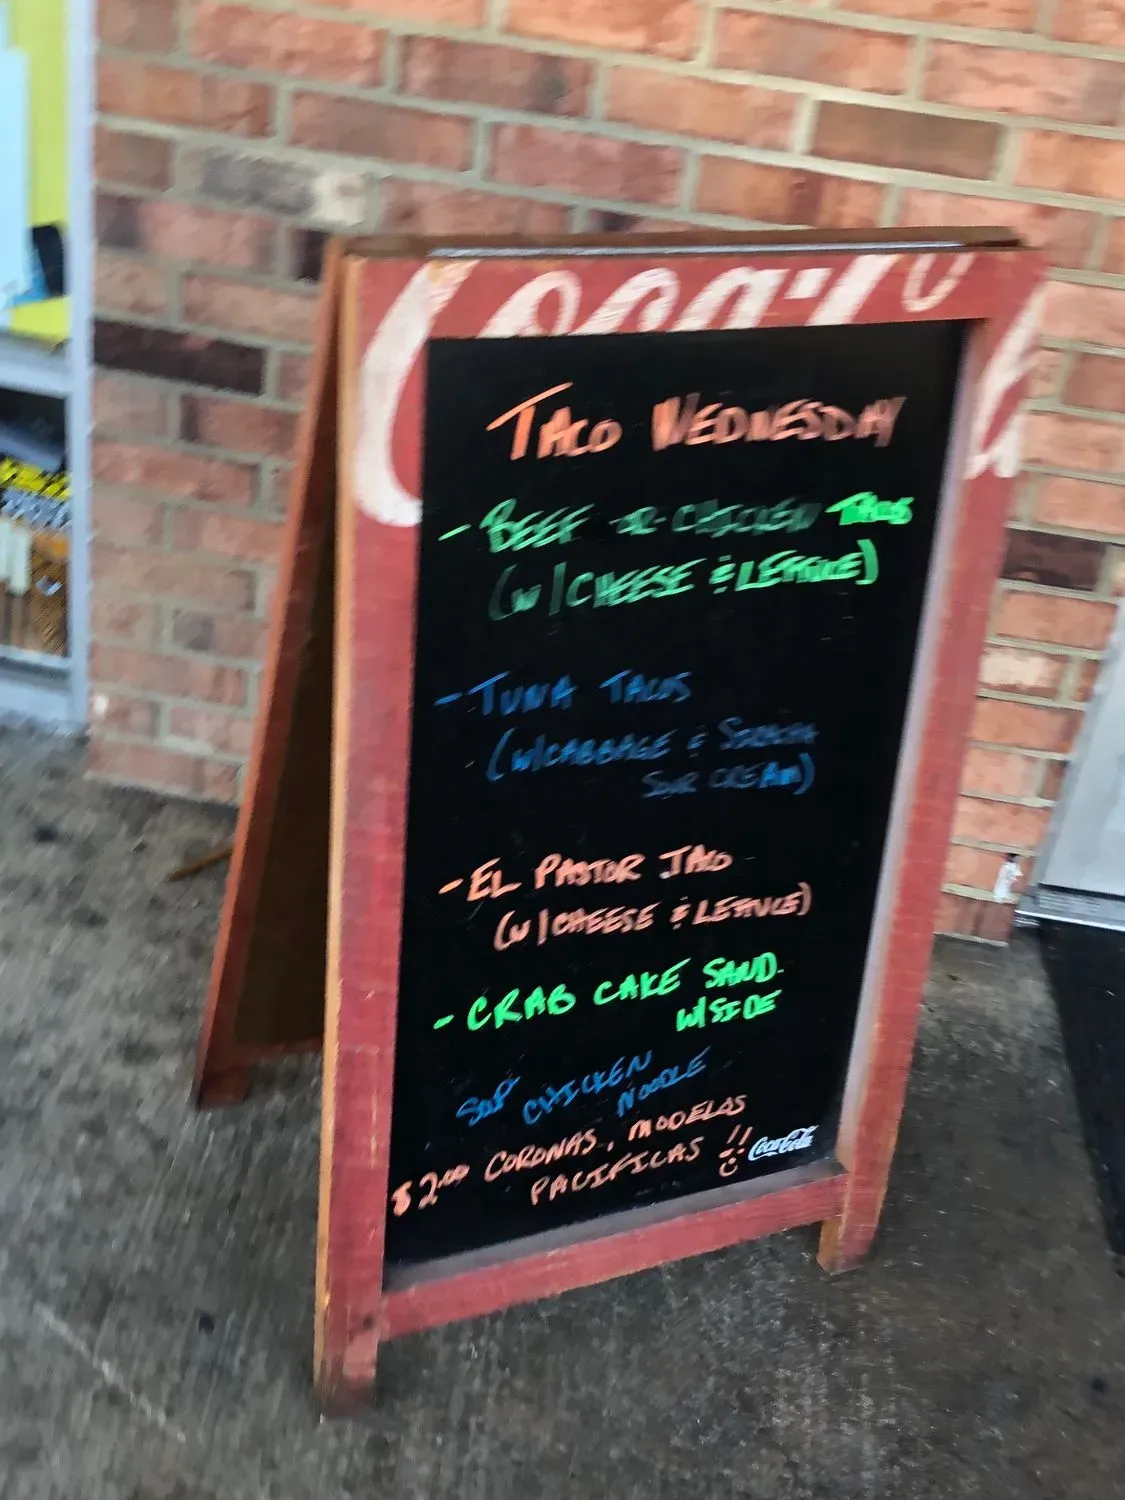 Coca-Co
TACO WEDNESDAY
- BEEF OR CHICKEN TACOS
(W/CHEESE & LETTUCE)
- TUNA TACOS
(W/CABBAGE &
SOUR CREAM)
- EL PASTOR TACO
(W/CHEESE & LETTUCE)
- CRAB CAKE SAND.
W/SIDE
SOUP CHICKEN
NOODLE
$2.00 CORONAS, MODELOS
PACIFICAS !!
Coca-Cola